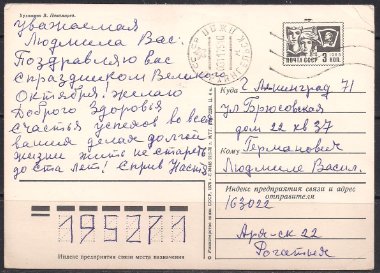 Художник В. Пономарев.
Уважаемая
Людмила Вас.
Поздравляю вас
с праздником Великого
Октября! желаю
Доброго Здоровья
Счастья успехов во всех
ваших делах долгой
жизни жить не стареть
до ста лет!
ПОЧТА СССР 3 КОП.
Куда г. Ленинград 71
ул Брюсовская
дом 22 кв 37
Кому Германович
Людмиле Васил.
Индекс предприятия связи и адрес
отправителя
163022
Арх-ск 22
195271
Индекс предприятия связи места назначения